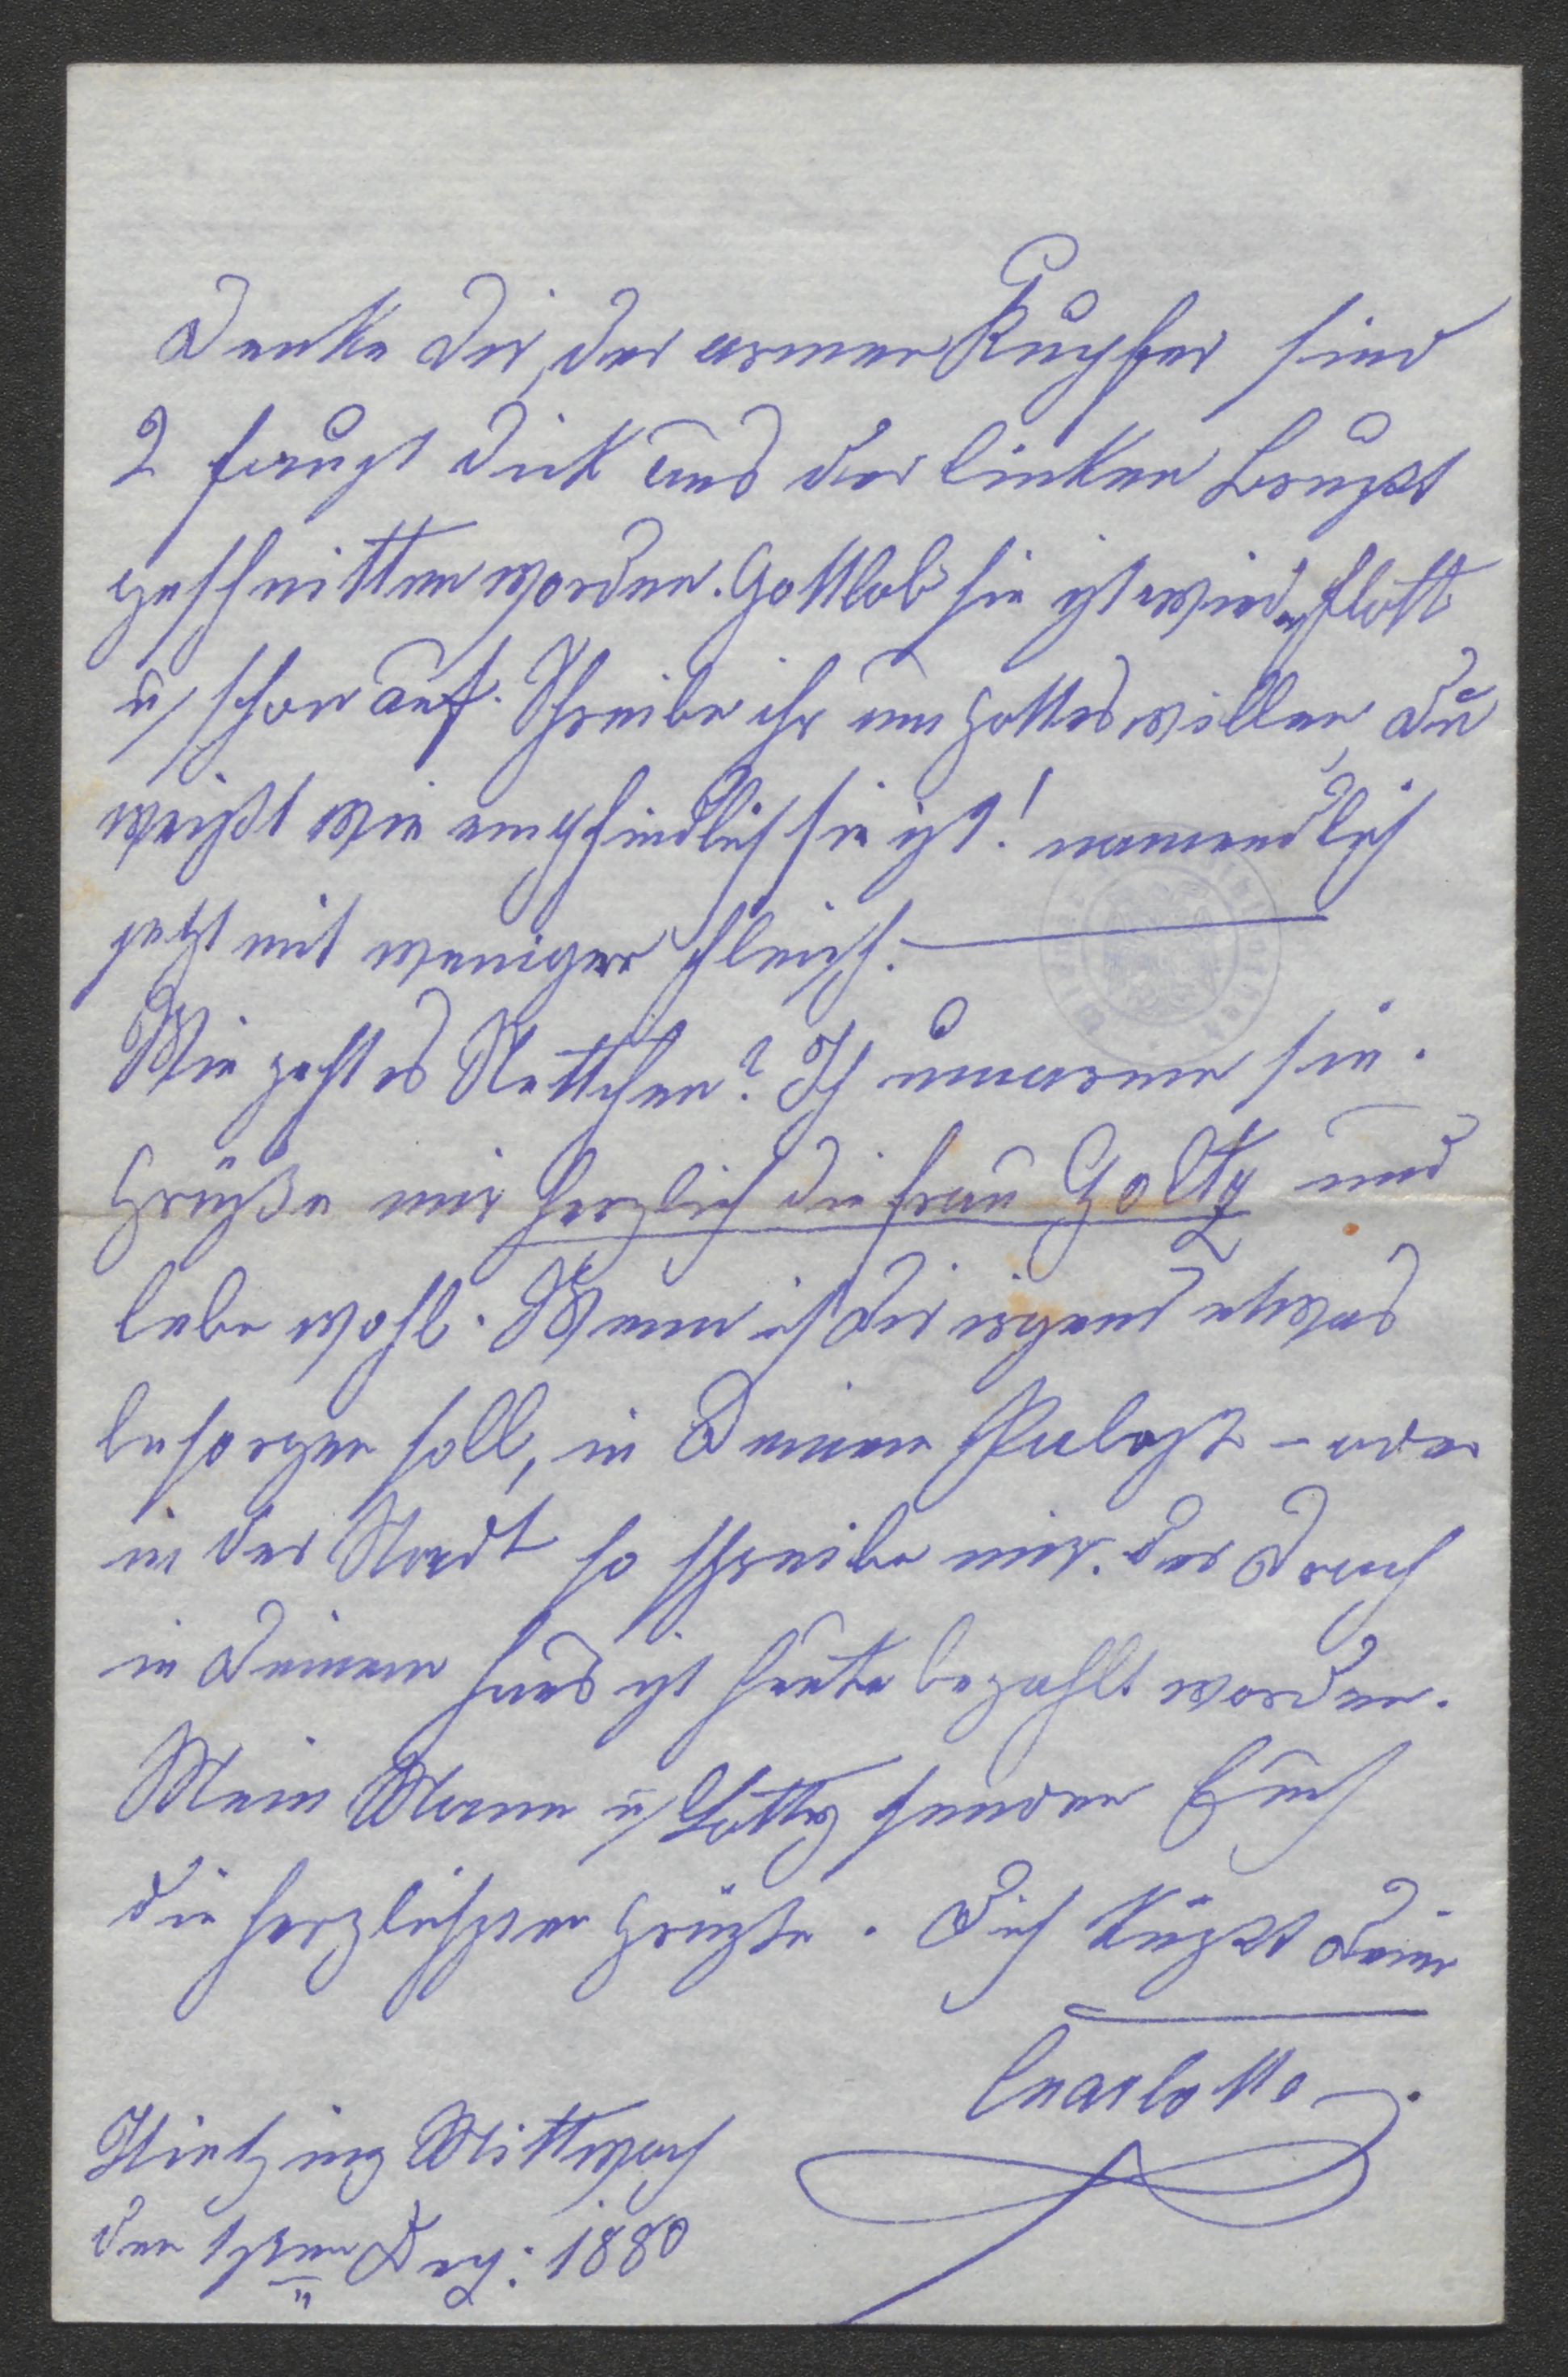 Denke Dir, der armen Kupfer sind
2 faust dick aus der linken Brust
geschnitten worden. Gottlob sie ist wieder flott
u/ schon auf. Schreibe ihr um Gottes willen, Du
weißt wie empfindlich sie ist! namendlich
jetzt mit weniger Fleisch. —
Wie geht es Nettchen? Ich umarme sie.
Grüße mir herzlich die Frau Goltz und
lebe wohl. Wenn ich Dir irgend etwas
besorgen soll, in Deinem Palast – oder
in der Stadt so schreibe mir. Der
in Deinem Haus ist heute bezahlt worden.
Mein Mann u/ Lotty senden Euch
die herzlichsten Grüße. Dich küsst Deine
Charlotte.
Hietzing Mittwoch
den 1sten Dez: 1880